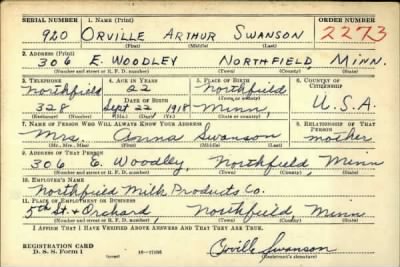 SERIAL NUMBER 1. NAME (Print) ORDER NUMBER
920 ORVILLE ARTHUR SWANSON 2273
(First) (Middle) (Last)
2. ADDRESS (Print)
306 E. WOODLEY NORTHFIELD MINN.
(Number and street or R. F. D. number) (Town) (County) (State)
3. TELEPHONE 4. AGE IN YEARS 5. PLACE OF BIRTH 6. COUNTRY OF CITIZENSHIP
Northfield 22 Northfield
(Exchange) DATE OF BIRTH (Town or county)
328 Sept 22 1918 Minn. U.S.A.
(Number) (Mo.) (Day) (Yr.) (State or country)
7. NAME OF PERSON WHO WILL ALWAYS KNOW YOUR ADDRESS 8. RELATIONSHIP OF THAT PERSON
Mrs. Anna Swanson mother
(Mr., Mrs., Miss) (First) (Middle) (Last)
9. ADDRESS OF THAT PERSON
306 E. Woodley, Northfield, Minn
(Number and street or R. F. D. number) (Town) (County) (State)
10. EMPLOYER'S NAME
Northfield Milk Products Co.
11. PLACE OF EMPLOYMENT OR BUSINESS
5th St. & Orchard, Northfield Minn
(Number and street or R. F. D. number) (Town) (County) (State)
I AFFIRM THAT I HAVE VERIFIED ABOVE ANSWERS AND THAT THEY ARE TRUE.
REGISTRATION CARD
D. S. S. Form 1 Orville Swanson
(over) (Registrant's signature)